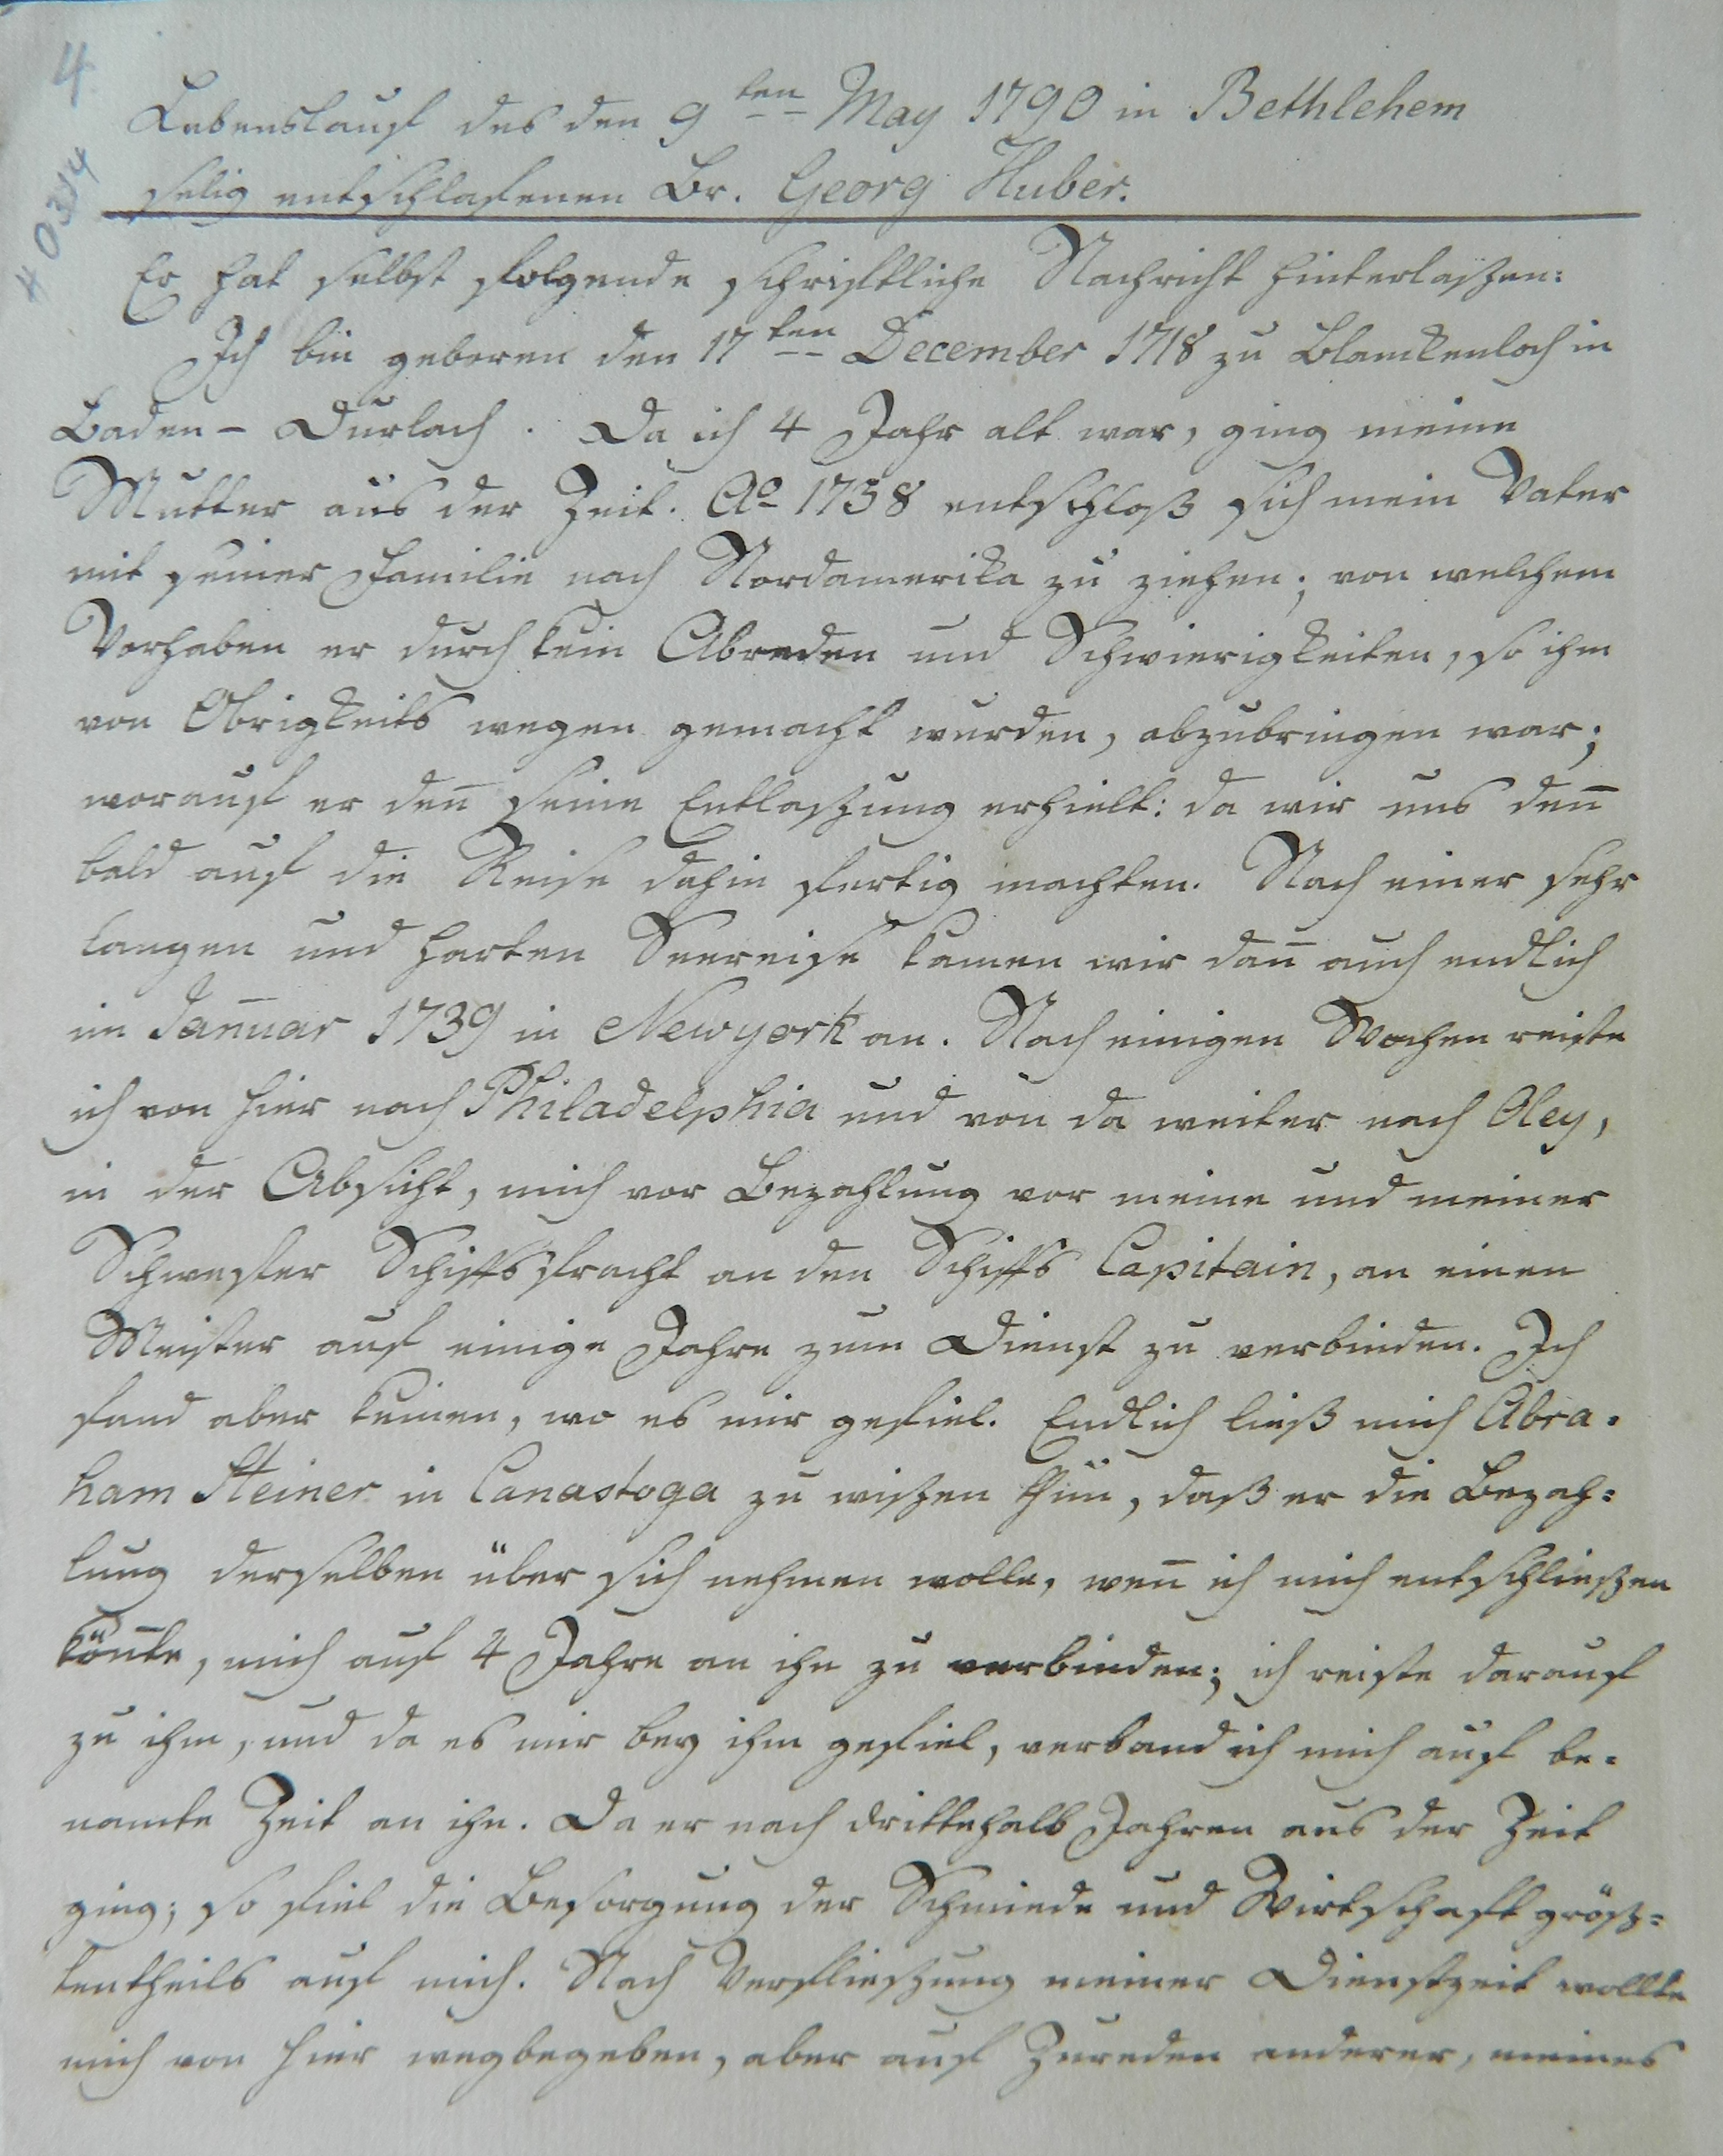 4
# 0314
Lebenslauf des den 9ten May 1790 in Bethlehem
selig entschlafenen Br. Georg Huber.
Er hat selbst folgende schriftliche Nachricht hinterlaßen:
Ich bin geboren den 17ten December 1718 zu Blanckenloch in
Baden-Durlach. Da ich 4 Jahr alt war, ging meine
Mutter aus der Zeit. Ao 1738 entschloß sich mein Vater
mit seiner Familie nach Nordamerika zu ziehen; von welchem
Vorhaben er durch kein Abreden und Schwierigkeiten, so ihm
von Obrigkeits wegen gemacht wurden, abzubringen war;
worauf er den̅ seine Entlaßung erhielt: da wir uns den̅
bald auf die Reise dahin fertig machten. Nach einer sehr
langen und harten Seereise kamen wir dan̅ auch endlich
im Jan̅uar 1739 in Newyork an. Nach einigen Wochen reiste
ich von hier nach Philadelphia und von da weiter nach Oley,
in der Absicht, mich vor Bezahlung vor meine und meiner
Schwester Schiffsfracht an den Schiffs Capitain, an einen
Meister auf einige Jahre zum Dienst zu verbinden. Ich
fand aber keinen, wo es mir gefiel. Endlich ließ mich Abra-
ham Steiner in Canastoga zu wißen thun, daß er die Bezah-
lung derselben über sich nehmen wolle, wen̅ ich mich entschließen
kön̅te, mich auf 4 Jahre an ihn zu verbinden; ich reiste darauf
zu ihm, und da es mir bey ihm gefiel, verband ich mich auf be-
namte Zeit an ihn. Da er nach drittehalb Jahren aus der Zeit
ging; so fiel die Besorgung der Schmiede und Wirtschaft größ-
tentheils auf mich. Nach Verfließung meiner Dienstzeit wollte
mich von hier wegbegeben, aber auf Zureden anderer, meines